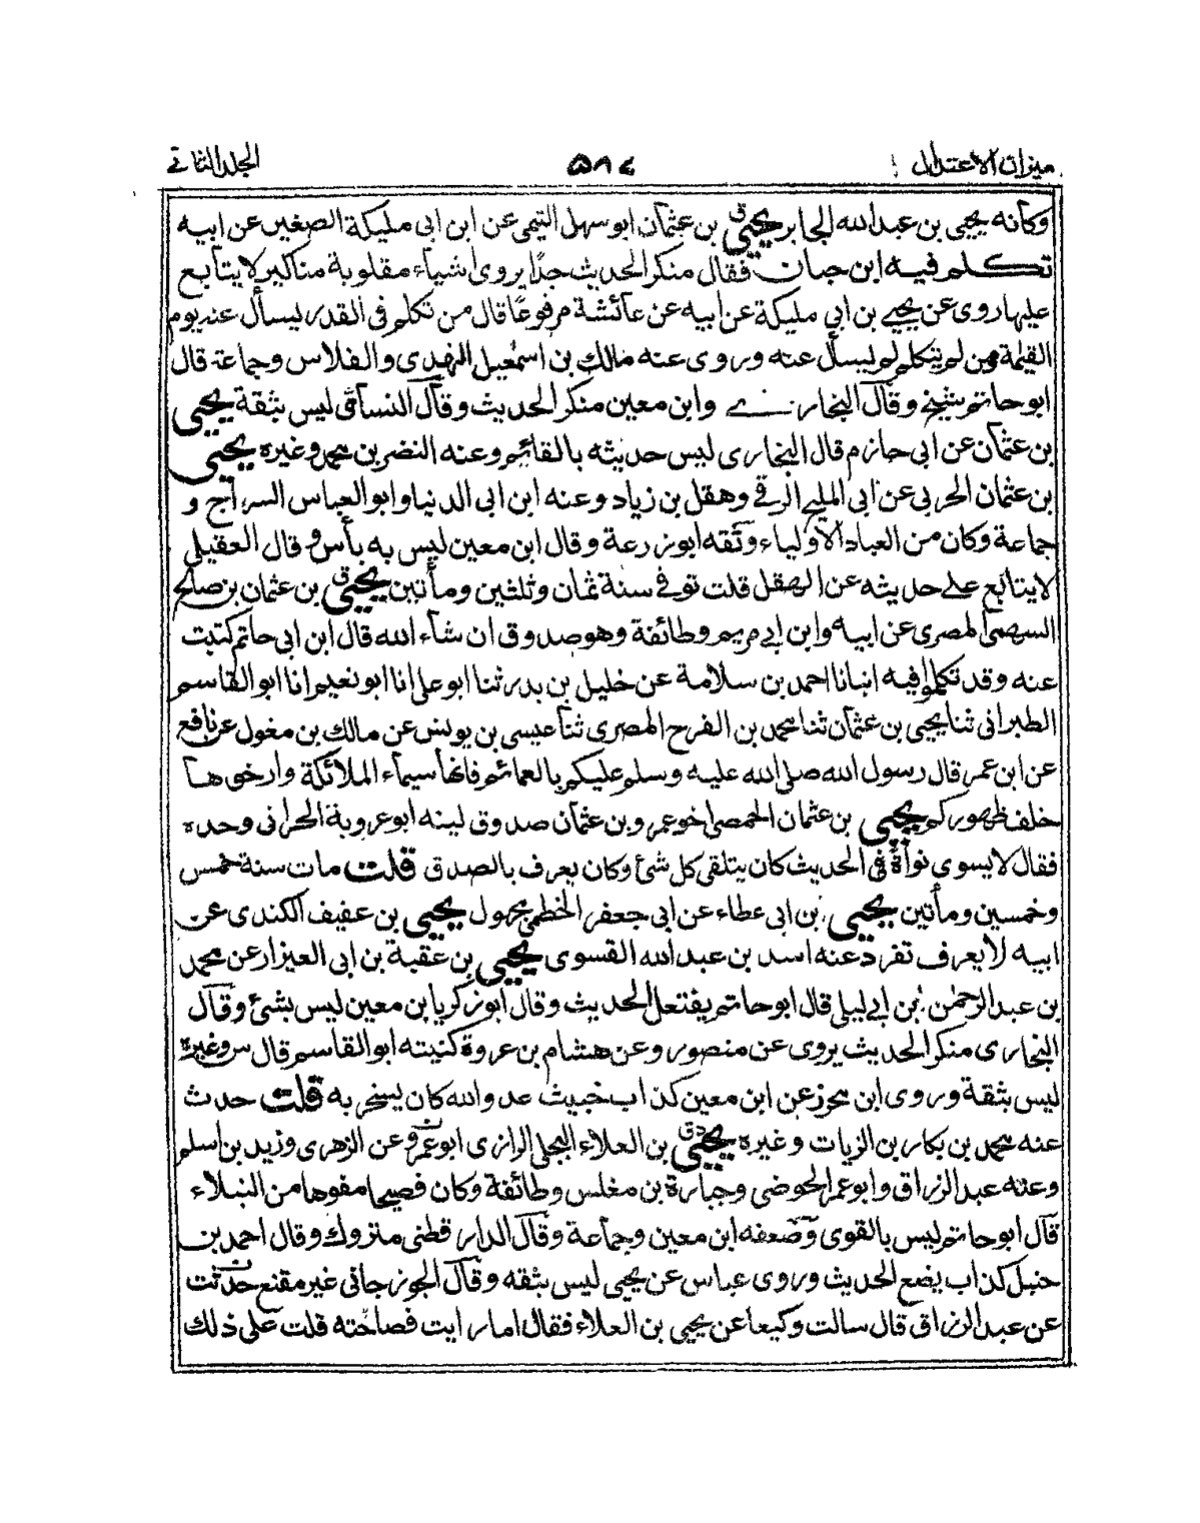 ميزان الاعتدال
٥٨٤
الجلد الثانى
وكأنه يحيى بن عبد الله الجابر يحيى ق بن عثمان ابو سهل التيمى عن ابن ابى مليكة الصغير عن ابيه
تكلم فيه ابن حبان فقال منكر الحديث جدًا يروى اشياء مقلوبة مناكير لا يتابع
عليها روى عن يحيى بن ابى مليكة عن ابيه عن عائشة مرفوعًا قال من تكلم فى القدر يسأل عنه يوم
القيمة ومن لم يتكلم لم يسأل عنه وروى عنه مالك بن اسمعيل النهدى والفلاس وجماعة قال
ابو حاتم شيخ وقال البخارى وابن معين منكر الحديث وقال النسائى ليس بثقة يحيى
بن عثمان عن ابى حازم قال البخارى ليس حديثه بالقائم وعنه النضر بن محمد وغيره يحيى
بن عثمان الحربى عن ابى المليح الرقى وهقل بن زياد وعنه ابن ابى الدنيا وابو العباس السراج و
جماعة وكان من العباد الاولياء وثقه ابو زرعة وقال ابن معين ليس به بأس و قال العقيلى
لا يتابع على حديثه عن الهقل قلت توفى سنة ثمان وثلثين ومأتين يحيى ق بن عثمان بن صالح
السهمى المصرى عن ابيه وابن ابى مريم وطائفة وهو صدوق ان شاء الله قال ابن ابى حاتم كتبت
عنه وقد تكلموا فيه انبانا احمد بن سلامة عن خليل بن بدر ثنا ابو على انا ابو نعيم انا ابو القاسم
الطبرانى ثنا يحيى بن عثمان ثنا محمد بن الفرح المصرى ثنا عيسى بن يونس عن مالك بن مغول عن نافع
عن ابن عمر قال رسول الله صلى الله عليه وسلم عليكم بالعمائم فانها سيماء الملائكة وارخوها
خلف ظهوركم يحيى بن عثمان الحمصى اخو عمرو بن عثمان صدوق لينه ابو عروبة الحرانى وحده
فقال لا يسوى نواة فى الحديث كان يتلقى كل شئ وكان يعرف بالصدق قلت مات سنة خمس
وخمسين ومأتين يحيى بن ابى عطاء عن ابى جعفر الخطمى مجهول يحيى بن عفيف الكندى عن
ابيه لا يعرف تفرد عنه اسد بن عبد الله القسوى يحيى بن عقبة بن ابى العيزار عن محمد
بن عبد الرحمن بن ابى ليلى قال ابو حاتم يفتعل الحديث وقال ابو زكريا بن معين ليس بشئ وقال
البخارى منكر الحديث يروى عن منصور وعن هشام بن عروة كنيته ابو القاسم قال س وغيره
ليس بثقة وروى ابن محرز عن ابن معين كذاب خبيث عدو الله كان يسخر به قلت حدث
عنه محمد بن بكار بن الزيات وغيره يحيى دق بن العلاء البجلى الرازى ابو عمرو عن الزهرى وزيد بن اسلم
وعنه عبد الرزاق وابو عمر الحوضى وجبارة بن مغلس وطائفة وكان فصيحا مفوها من النبلاء
قال ابو حاتم ليس بالقوى وضعفه ابن معين وجماعة وقال الدار قطنى متروك وقال احمد بن
حنبل كذاب يضع الحديث وروى عباس عن يحيى ليس بثقه وقال الجوزجانى غير مقنع حدثت
عن عبد الرزاق قال سالت وكيعا عن يحيى بن العلاء فقال اما رايت فصاحته قلت على ذلك